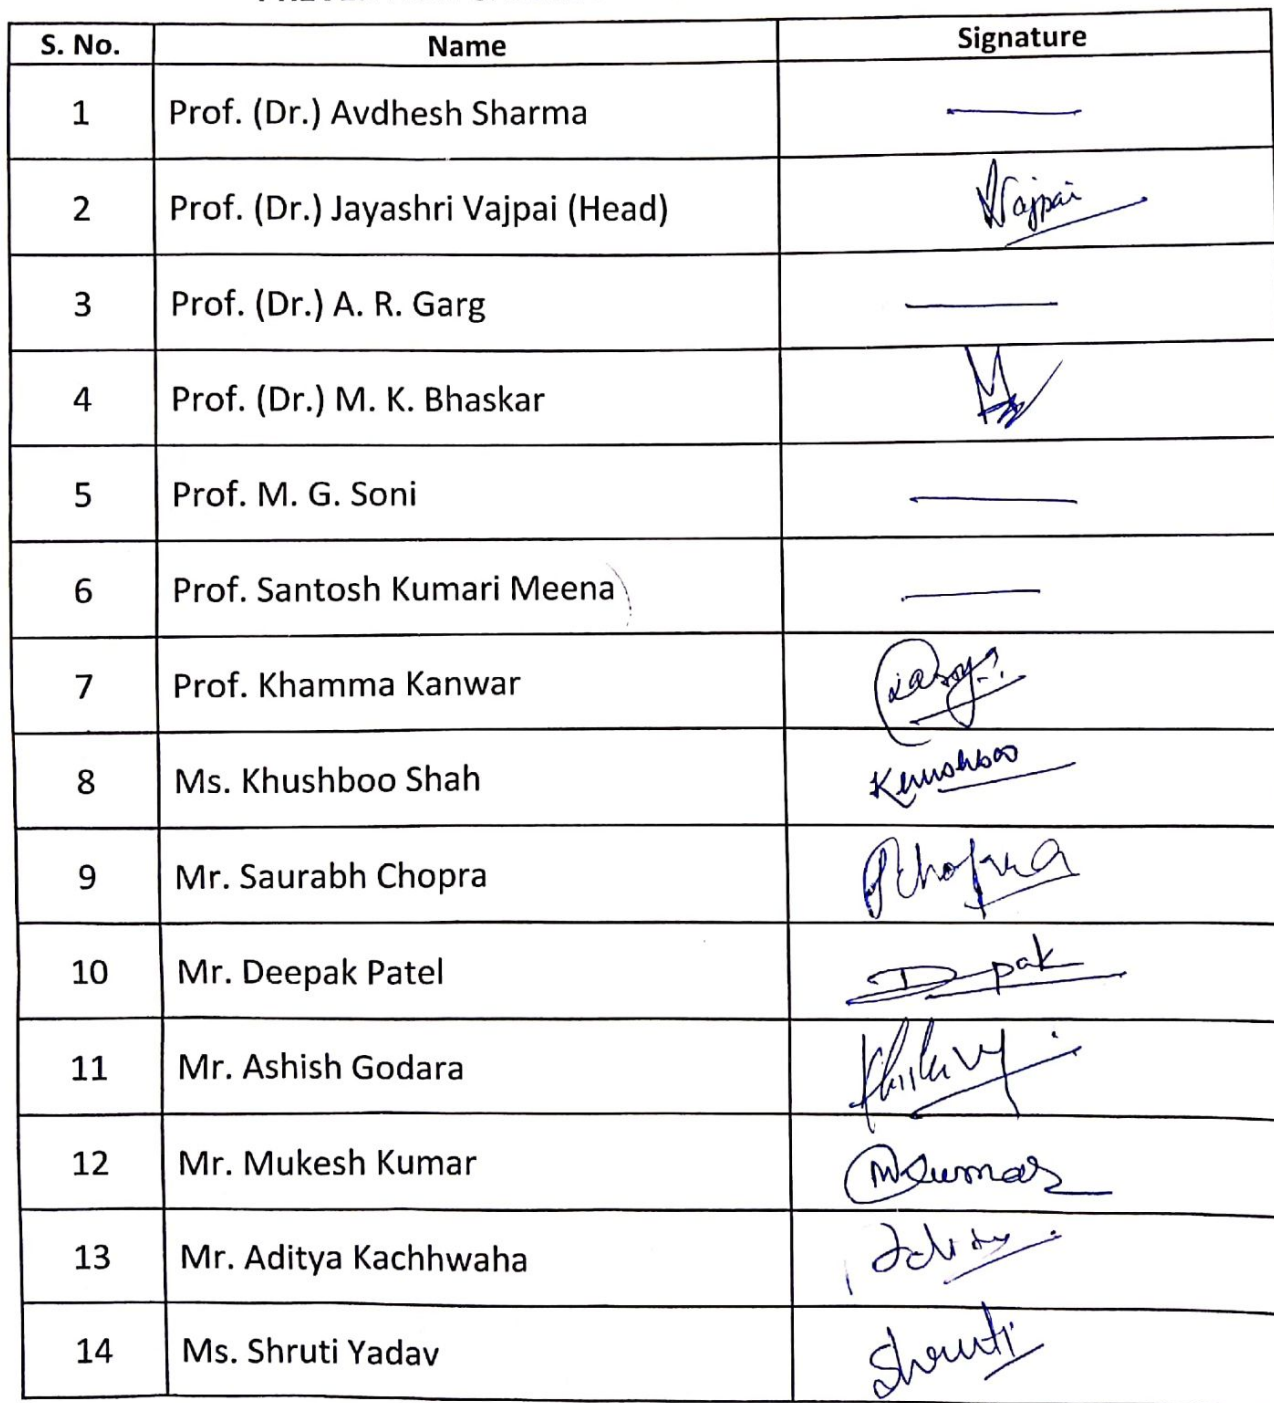 S. No. Name Signature
1 Prof. (Dr.) Avdhesh Sharma —
2 Prof. (Dr.) Jayashri Vajpai (Head) Vajpai
3 Prof. (Dr.) A. R. Garg —
4 Prof. (Dr.) M. K. Bhaskar
5 Prof. M. G. Soni —
6 Prof. Santosh Kumari Meena —
7 Prof. Khamma Kanwar
8 Ms. Khushboo Shah Khushboo
9 Mr. Saurabh Chopra SChopra
10 Mr. Deepak Patel D-pak
11 Mr. Ashish Godara
12 Mr. Mukesh Kumar MKumar
13 Mr. Aditya Kachhwaha Aditya
14 Ms. Shruti Yadav Shruti